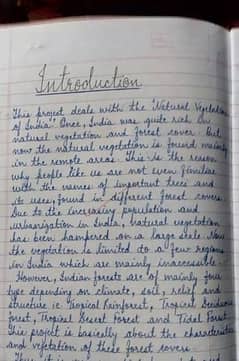 Introduction
This project deals with the "Natural Vegetation
of India". Once, India was quite rich in
natural vegetation and forest cover. But
now the natural vegetation is found mainly
in the remote areas. This is the reason
why people like us are not even familiar
with the names of important trees and
its uses, found in different forest covers.
Due to the increasing population and
urbanisation in India, natural vegetation
has been hampered on a large scale. Now
the vegetation is limited to a few regions
in India which are mainly inaccessible.
However, Indian forests are of mainly four
type depending on climate, soil, relief and
structure ie Tropical Rainforest, Tropical Deciduous
forest, Tropical Desert Forest and Tidal Forest.
This project is basically about the characteristics
and vegetation of these forest covers.